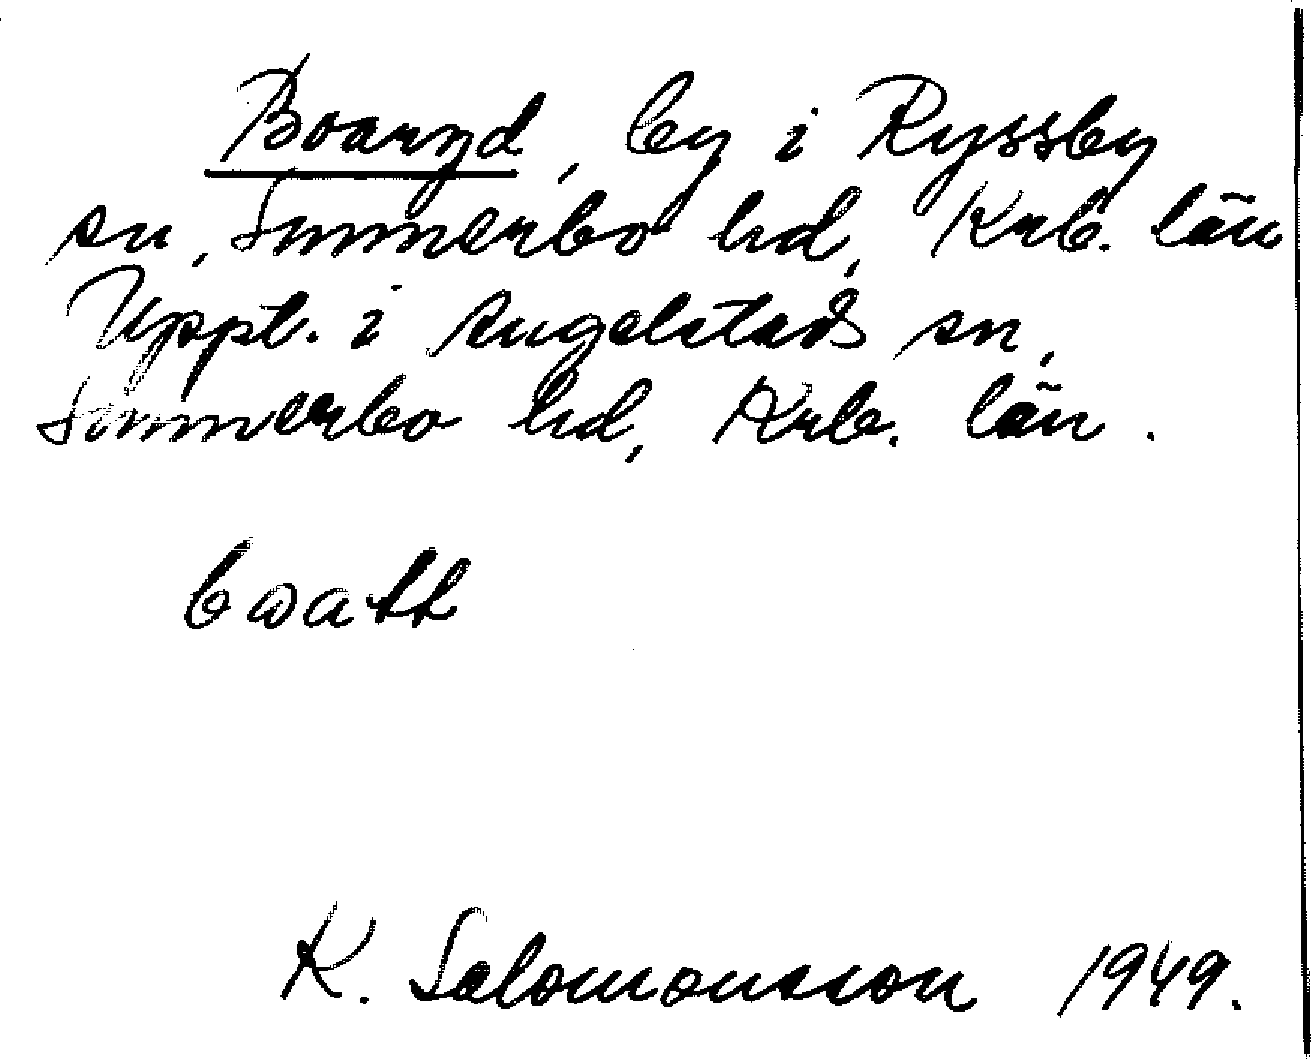 Boaryd, by i Ryssby
sn, Sunnerbo hd, Krb. län
Uppt. i Angelstads sn,
Sunnerbo hd, Krb. län.
K. Salomonsson 1949.